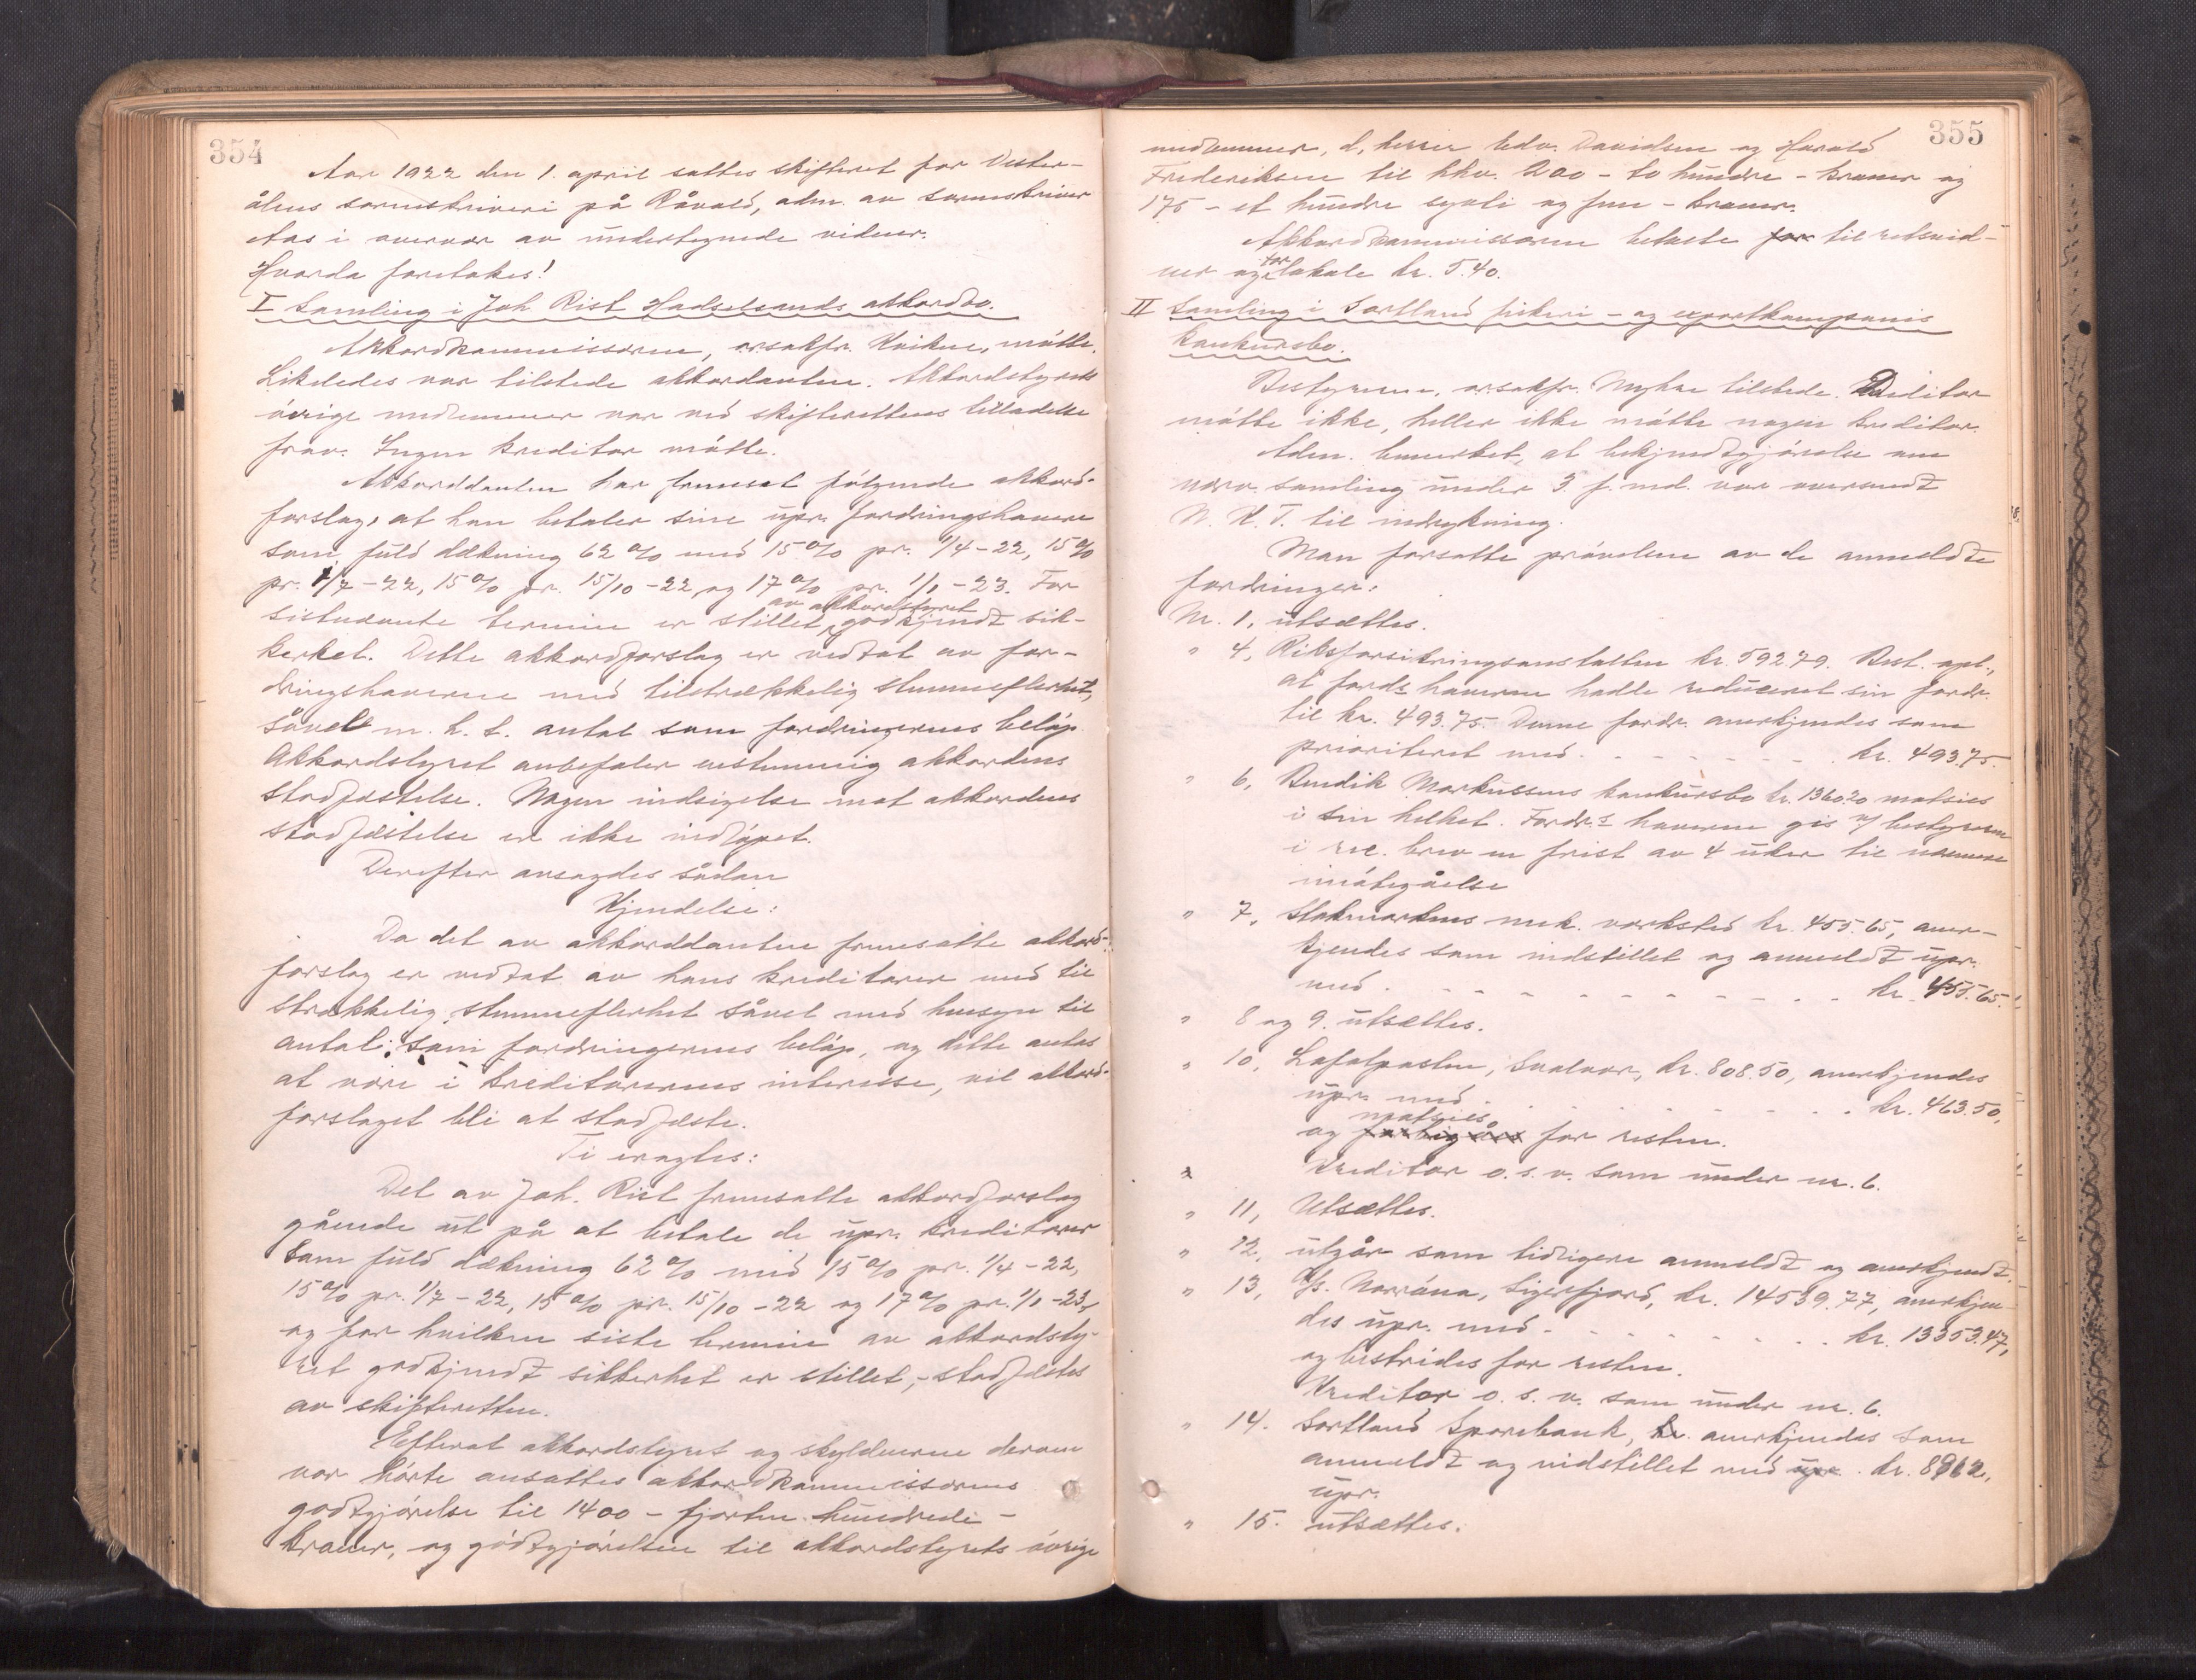 354
Aar 1922 den 1. april sattes skifteret for Vester-
ålens sorenskriveri på Råvold, adm. av sorenskriver
Aas i overvær av undertegnede vidner.
Hvorda foretokes!
I Samling i Joh Rist Hadselsands akkordbo.
Akkordkommissæren, o.r.sakfr. Kvikne, møtte.
Likeledes var tilstede akkordanten. Akkordstyrets
øvrige medlemmer var med skifterettens tilladelse
frav. Ingen kreditor møtte.
Akkorddanten har fremsat følgende akkord-
forslag, at han betaler sine upr. fordringshavere
som fuld dækning 62 % med 15 % pr. 1/4-22, 15 %
pr. 1/7-22, 15 % pr. 15/10-22 og 17 % pr. 1/1-23. For
av akkordstyret
sistnævnte termin er stillet godkjendt sik-
kerhet. Dette akkordforslag er vedtat av for-
dringshaverne med tilstrækkelig stemmeflerhet,
såvel m. h. t. antal som fordringernes beløp.
Akkordstyret anbefaler enstemmig akkordens
stadfæstelse. Nogen indsigelse mot akkordens
stadfæstelse er ikke indløpet.
Derefter avsagdes sådan
Kjendelse:
Da det av akkorddanten fremsatte akkord-
forslag er vedtat av hans kreditorer med til
strækkelig stemmeflerhet såvel med hensyn til
antal som fordringernes beløp, og dette antas
at være i kreditorernes interesse, vil akkord-
forslaget bli at stadfæste.
Ti eragtes:
Det av Joh. Rist fremsatte akkordforslag
gående ut på at betale de upr. kreditorer
som fuld dækning 62 % med 15 % pr. 1/4-22,
15 % pr. 1/7-22, 15 % pr. 15/10-22 og 17 % pr. 1/1-23,
og for hvilken siste termin av akkordsty-
ret godkjendt sikkerhet er stillet,- stadfæstes
av skifteretten.
Efterat akkordstyret og skyldneren derom
var hørte ansattes akkordkommissærens
godtgjørelse til 1400 - fjorten hundrede -
kroner, og godtgjørelsen til akkordstyrets øvrige
355
medlemmer, d, herrer Edv. Davidsen og Harald
Frederiksen til hhv. 200 - to hundre - kroner og
175 - et hundre sytti og fem - kroner.
Akkordkommissæren betalte for til retsvid-
for
ner og lokale kr. 5.40.
II Samling i Sortland fiskeri - og exportkompanis
konkursbo.
Bestyreren, o.r.sakfr. Myhre tilstede. Debitor
møtte ikke, heller ikke møtte nogen kreditor.
Adm. bemerket, at bekjendtgjørelse om
nærv. samling under 3. f. md. var oversendt
N. K. T. til indrykning.
Man forsatte prøvelsen av de anmeldte
fordringer:
Nr. 1, utsættes.
" 4, Riksforsikringsanstalten kr. 592.79. Best. opl.,
at fords haveren hadde reduceret sin fordr.
til kr. 493.75. Denne fordr. anerkjendes som
prioriteret med . . . . . . . kr. 493.75.
" 6, Bendik Markussens konkursbo kr. 1360.20 motsies
i sin helhet. Fordr.s haveren gis v/ bestyreren
i rec. brev en frist av 4 uker til nærmere
imøtegåelse
" 7, Stokmarknes mek. værksted kr. 455.65, aner-
kjendes som indstillet og anmeldt upr.
med . . . . . . . . . . . kr. 455.65.
" 8 og 9. utsættes.
" 10, Lofotposten, Svolvær, kr. 808.50, anerkjendes
upr. med . . . . . . . . . . kr. 463.50,
motsies
og for resten.
Kreditor o. s. v. som under nr. 6.
" 11, Utsættes.
" 12, utgår som tidligere anmeldt og anerkjendt.
" 13, A/s. Norrøna, Sigerfjord, kr. 14539.77, anerkjen-
des upr. med . . . . . . . . . kr. 13353.47,
og bestrides for resten.
Kreditor o. s. v. som under nr. 6.
" 14. Sortland Sparebank, kr. anerkjendes som
anmeldt og indstillet med upr. kr. 8912.,
upr.
" 15. utsættes.